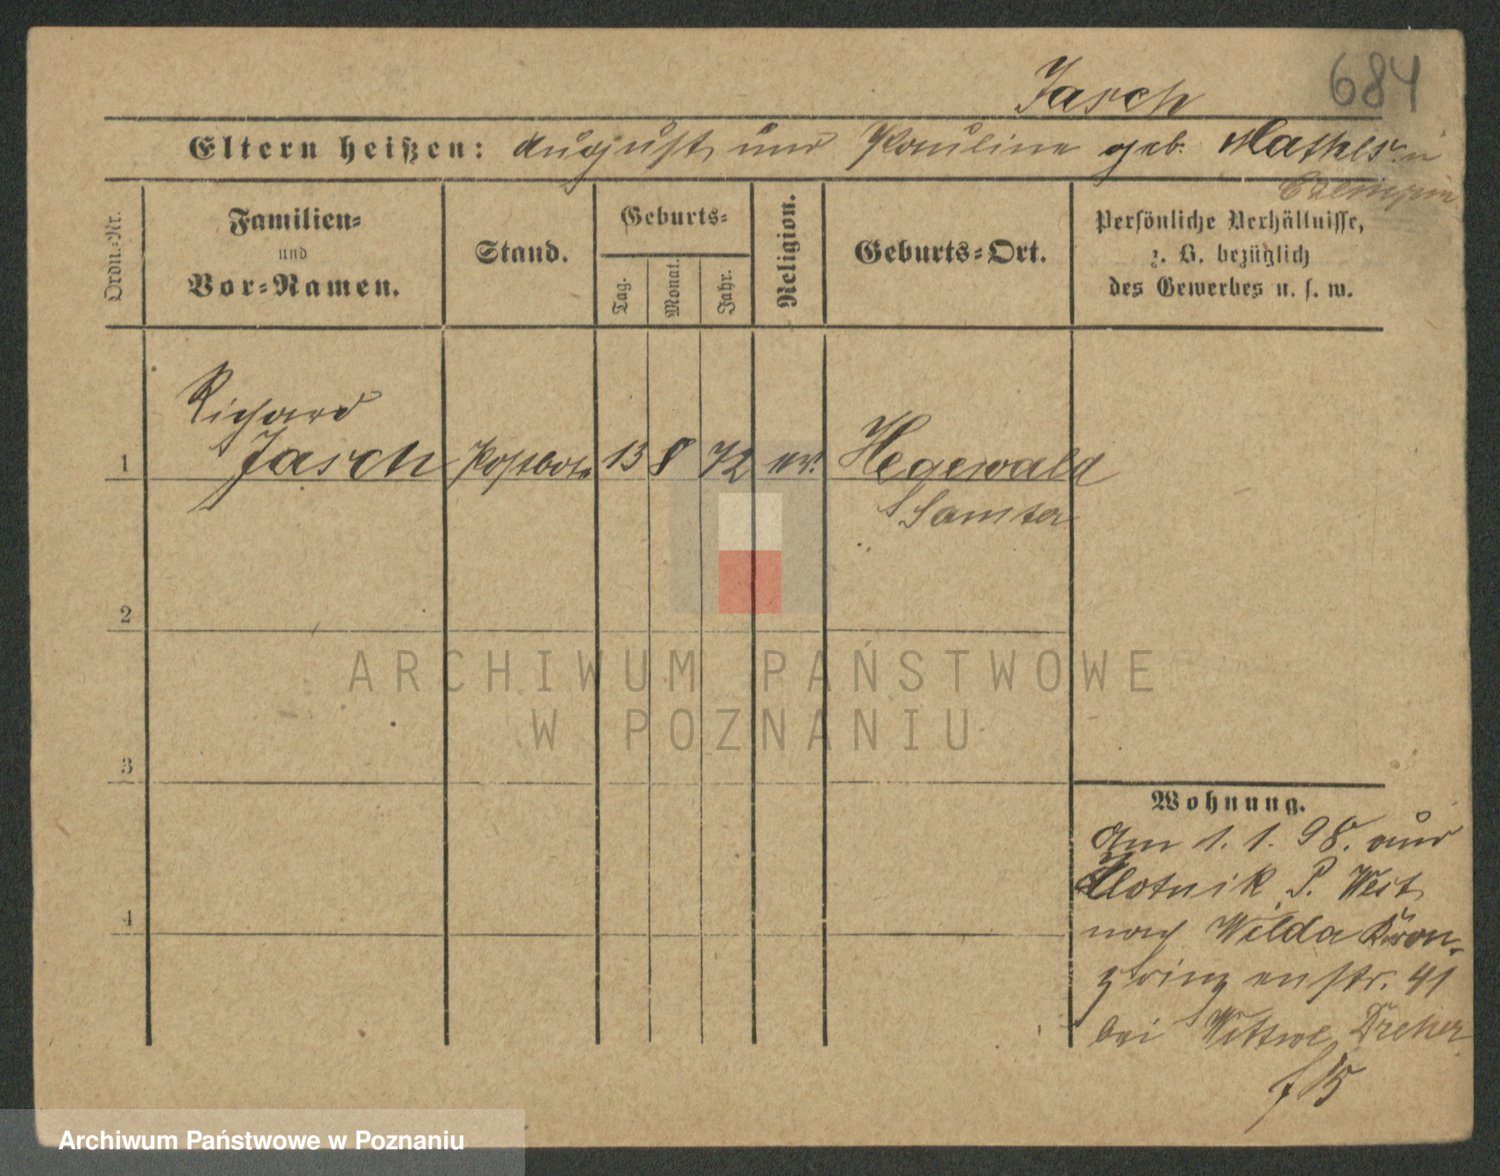 684
Jasch
Eltern heißen: August und Pauline geb. Mathes in
Czempin
Ordn.-Nr.
Familien-
und
Vor-Namen.
Stand.
Geburts-
Tag.
Monat.
Jahr.
Religion.
Geburts-Ort.
Persönliche Verhältnisse,
z. B. bezüglich
des Gewerbes u. s. w.
Richard
1 Jasch Postbote 13 8 72 ev. Hegewald
Samter
2
ARCHIWUM PAŃSTWOWE
W POZNANIU
3
Wohnung.
Am 1. 1. 98. aus
Zlotnik P. West
4
nach Wilda Kron-
prinzenstr. 41
bei Wittwe Dreher
Archiwum Państwowe w Poznaniu